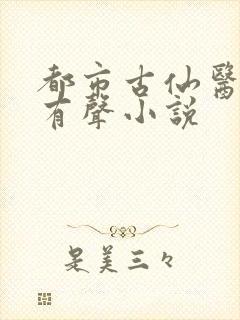 都市古仙醫
有聲小説
是美三々